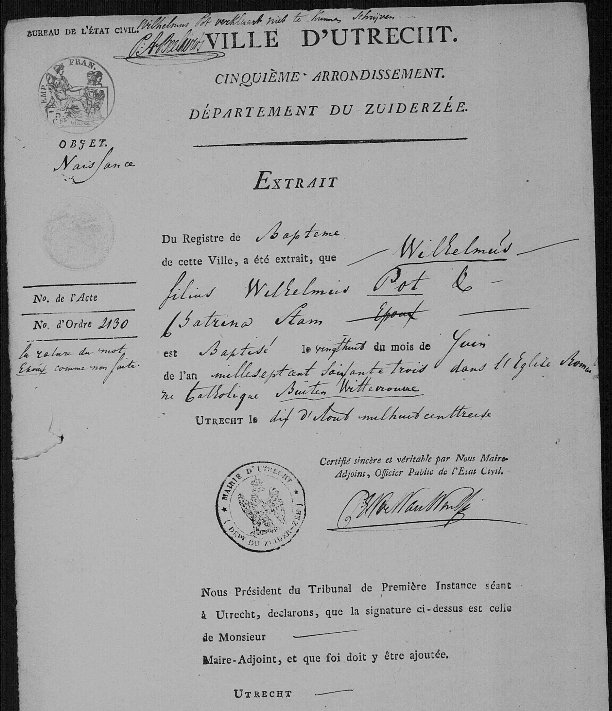 Wilhelmus Pot verklaart niet te kunnen Schrijven
BUREAU DE L'ÉTAT CIVIL.
VILLE D'UTRECHT.
CINQUIÈME ARRONDISSEMENT.
DÉPARTEMENT DU ZUIDERZÉE.
EMP. FRAN.
OBJET.
Naissance
EXTRAIT
Du Registre de Bapteme
de cette Ville, a été extrait, que Wilhelmus
filius Wilhelmus Pot &
Catrina Stam Epoux
No. de l'Acte
No. d'Ordre 2130
la rature du mot
Epoux comme non faite.
est Baptisé le vingthuit du mois de Juin
de l'an milleseptcent soixante trois dans l'Eglise Romai
ne Catholique Buiten Wittevrouwe
UTRECHT le dix d'Aout milhuitcenttreise
Certifié sincère et véritable par Nous Maire-
Adjoint, Officier Public de l'Etat Civil.
MAIRIE D'UTRECHT
DEPT. DU ZUIDERZEE
Nous Président du Tribunal de Première Instance séant
à Utrecht, declarons, que la signature ci-dessus est celle
de Monsieur
Maire-Adjoint, et que foi doit y être ajoutée.
UTRECHT